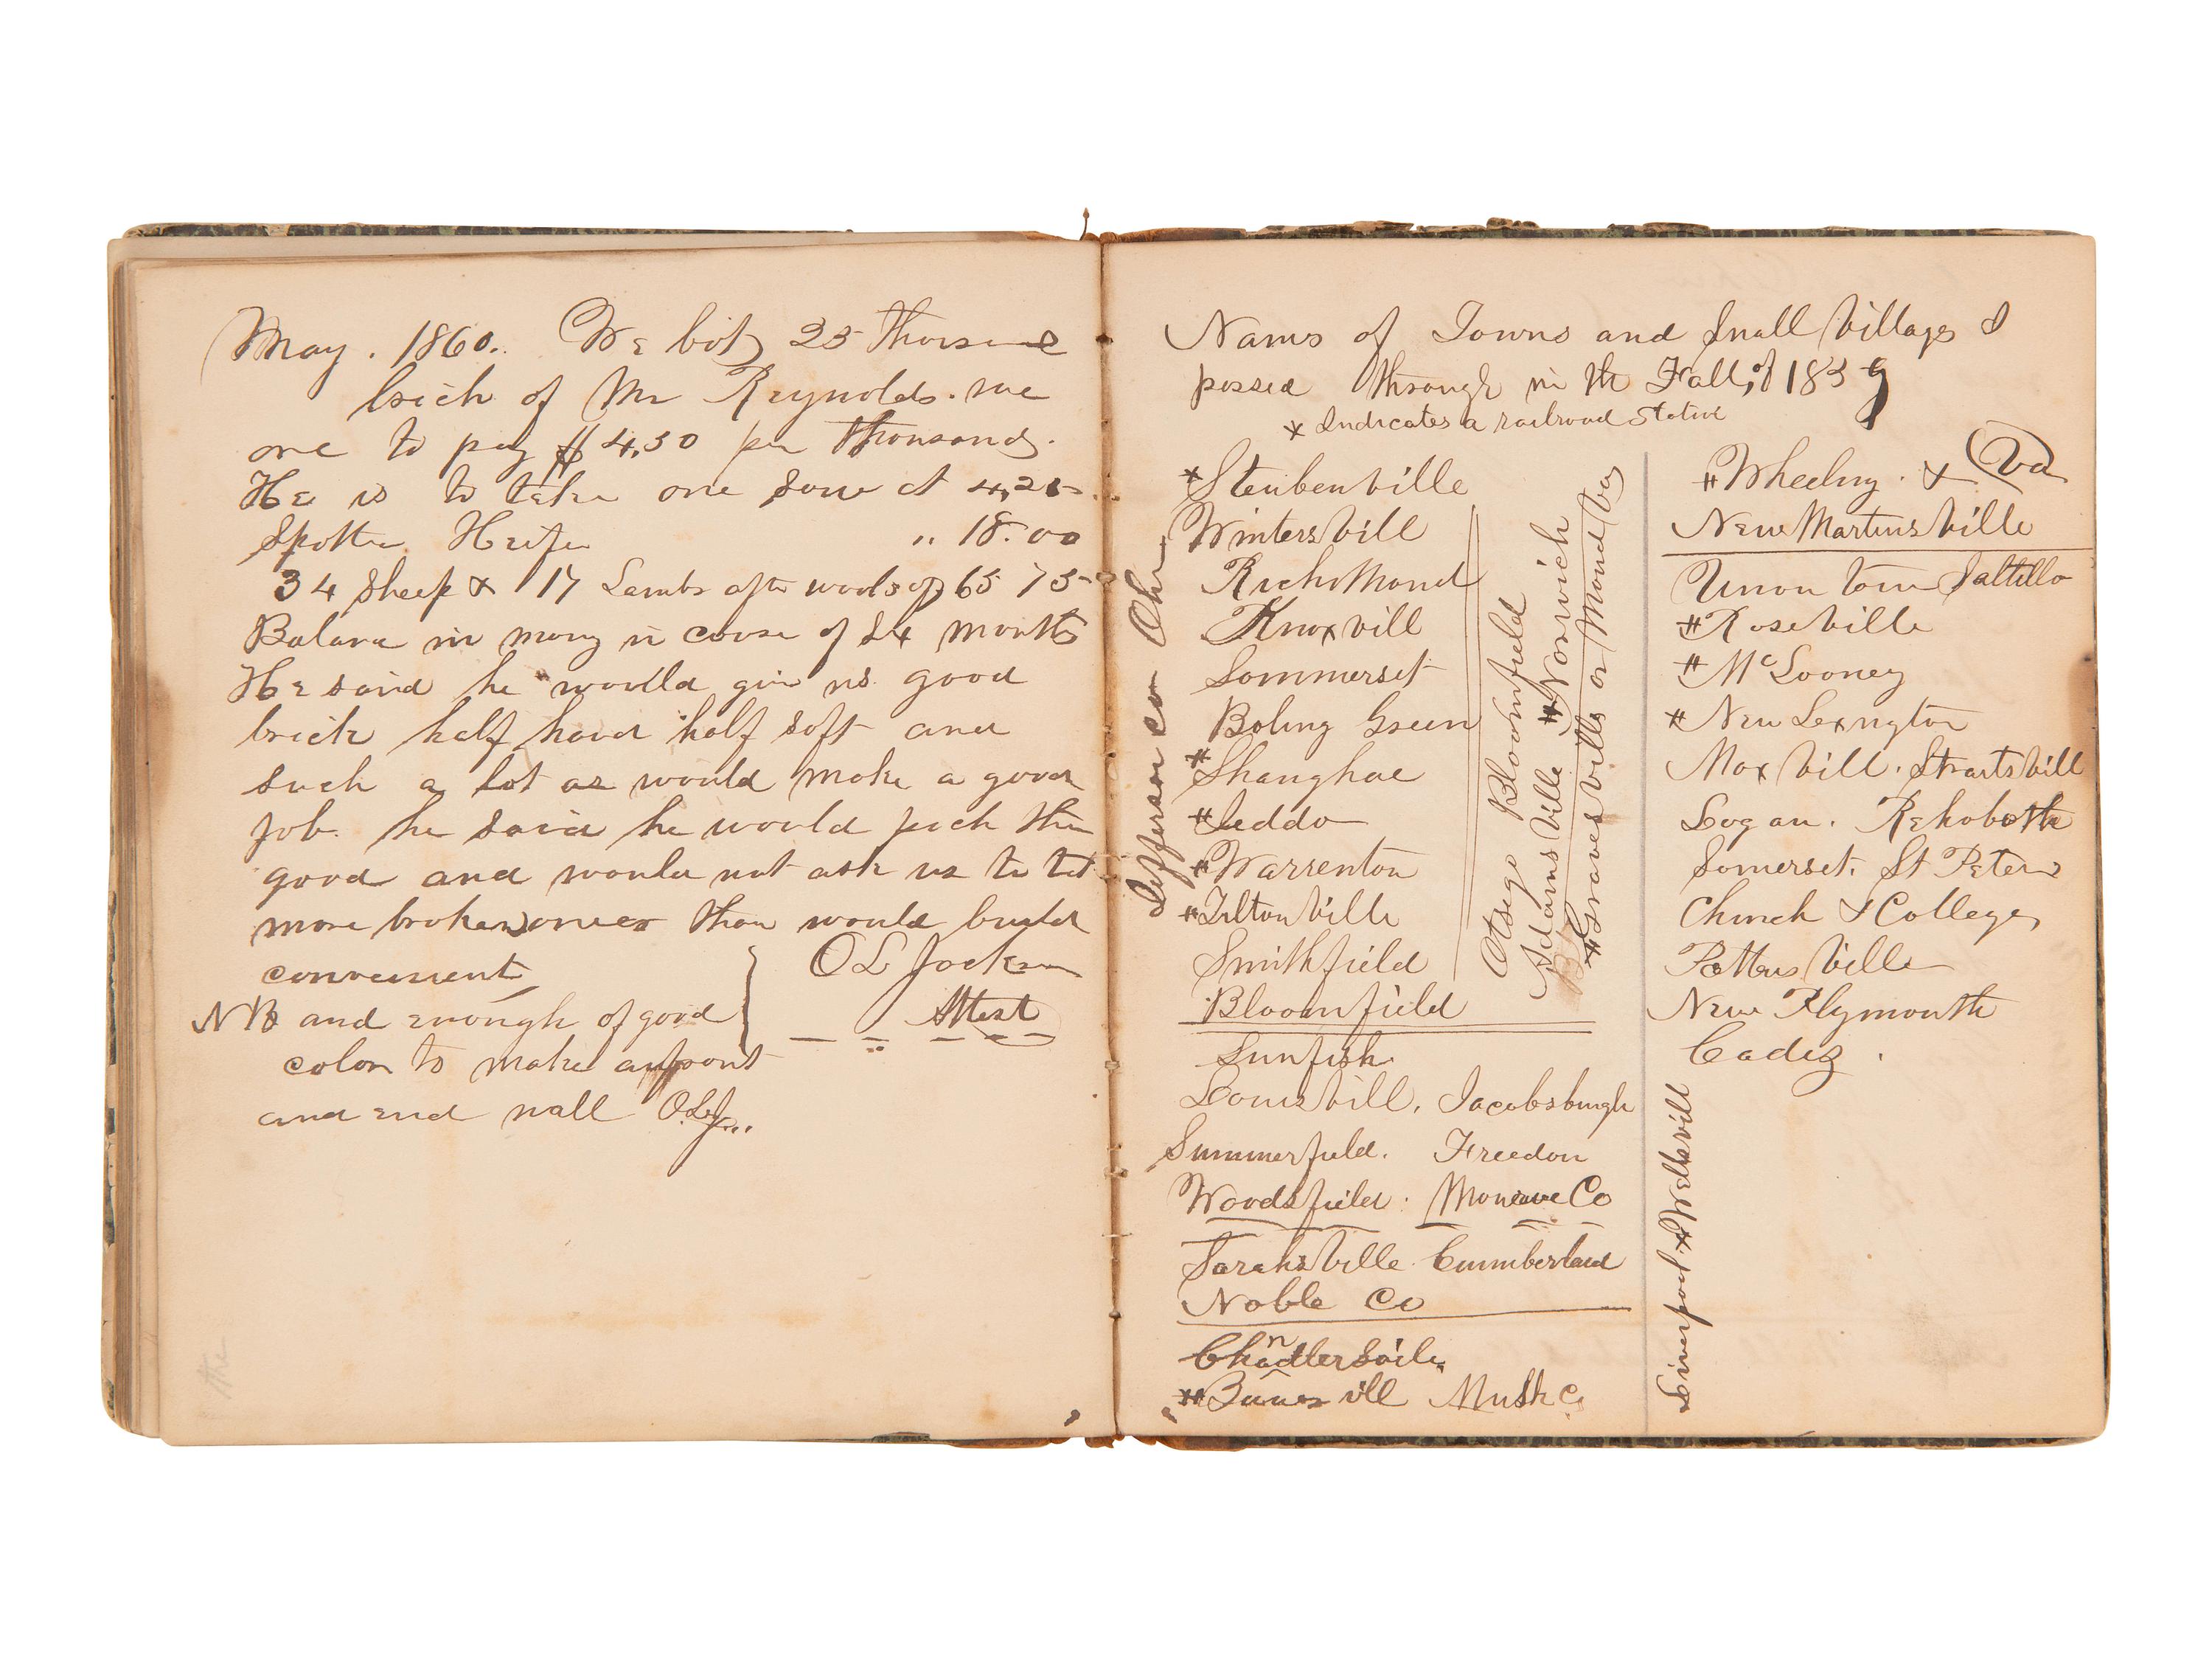 May. 1860.. We bot 25 Thousand
brick of Mr Reynolds. we
are to pay $4,50 per thousand.
He is to take one sow at 4,25
Spotted Heifer " 18.00
34 Sheep & 17 Lambs after wool is off 65 75
Balance in mony in course of 24 months
He said he would give us good
brick half hard half soft and
such a lot as would make a good
job. he said he would pick them
good and would not ask us to tak
more broken ones than would build
convenient
O L Jackson
Attest
NB and enough of good
color to make a front
and end wall O.L.J...
Names of Towns and Small Villages I
passed through in the Fall of 1859
* Indicates a railroad Station
Jefferson co Ohio
*Steubenville
Wintersvill
Richmond
Knoxvill
Sommerset
Boling Green
*Shanghae
*Jeddo
*Warrenton
*Tiltonville
Smithfield
Bloomfield
Otsego Bloomfield
Adamsville *Norwich
*Gravesville or Mound Va
Sunfish
Louisvill. Jacobsburgh
Summerfield. Freedom
Woodsfield. Monroe Co
Sarahsville Cummberland
Noble Co
Chandlersvile
*Banesvill Musk Co
*Wheelng. & Va
New Martinsville
Union town Saltillo
*Roseville
*McLooney
*New Lexington
Maxvill. Straitsvill
Logan. Rehoboth
Somerset. St Peters
Church & College
Pottersville
New Plymouth
Cadiz.
*Liverpool *Wellsvill